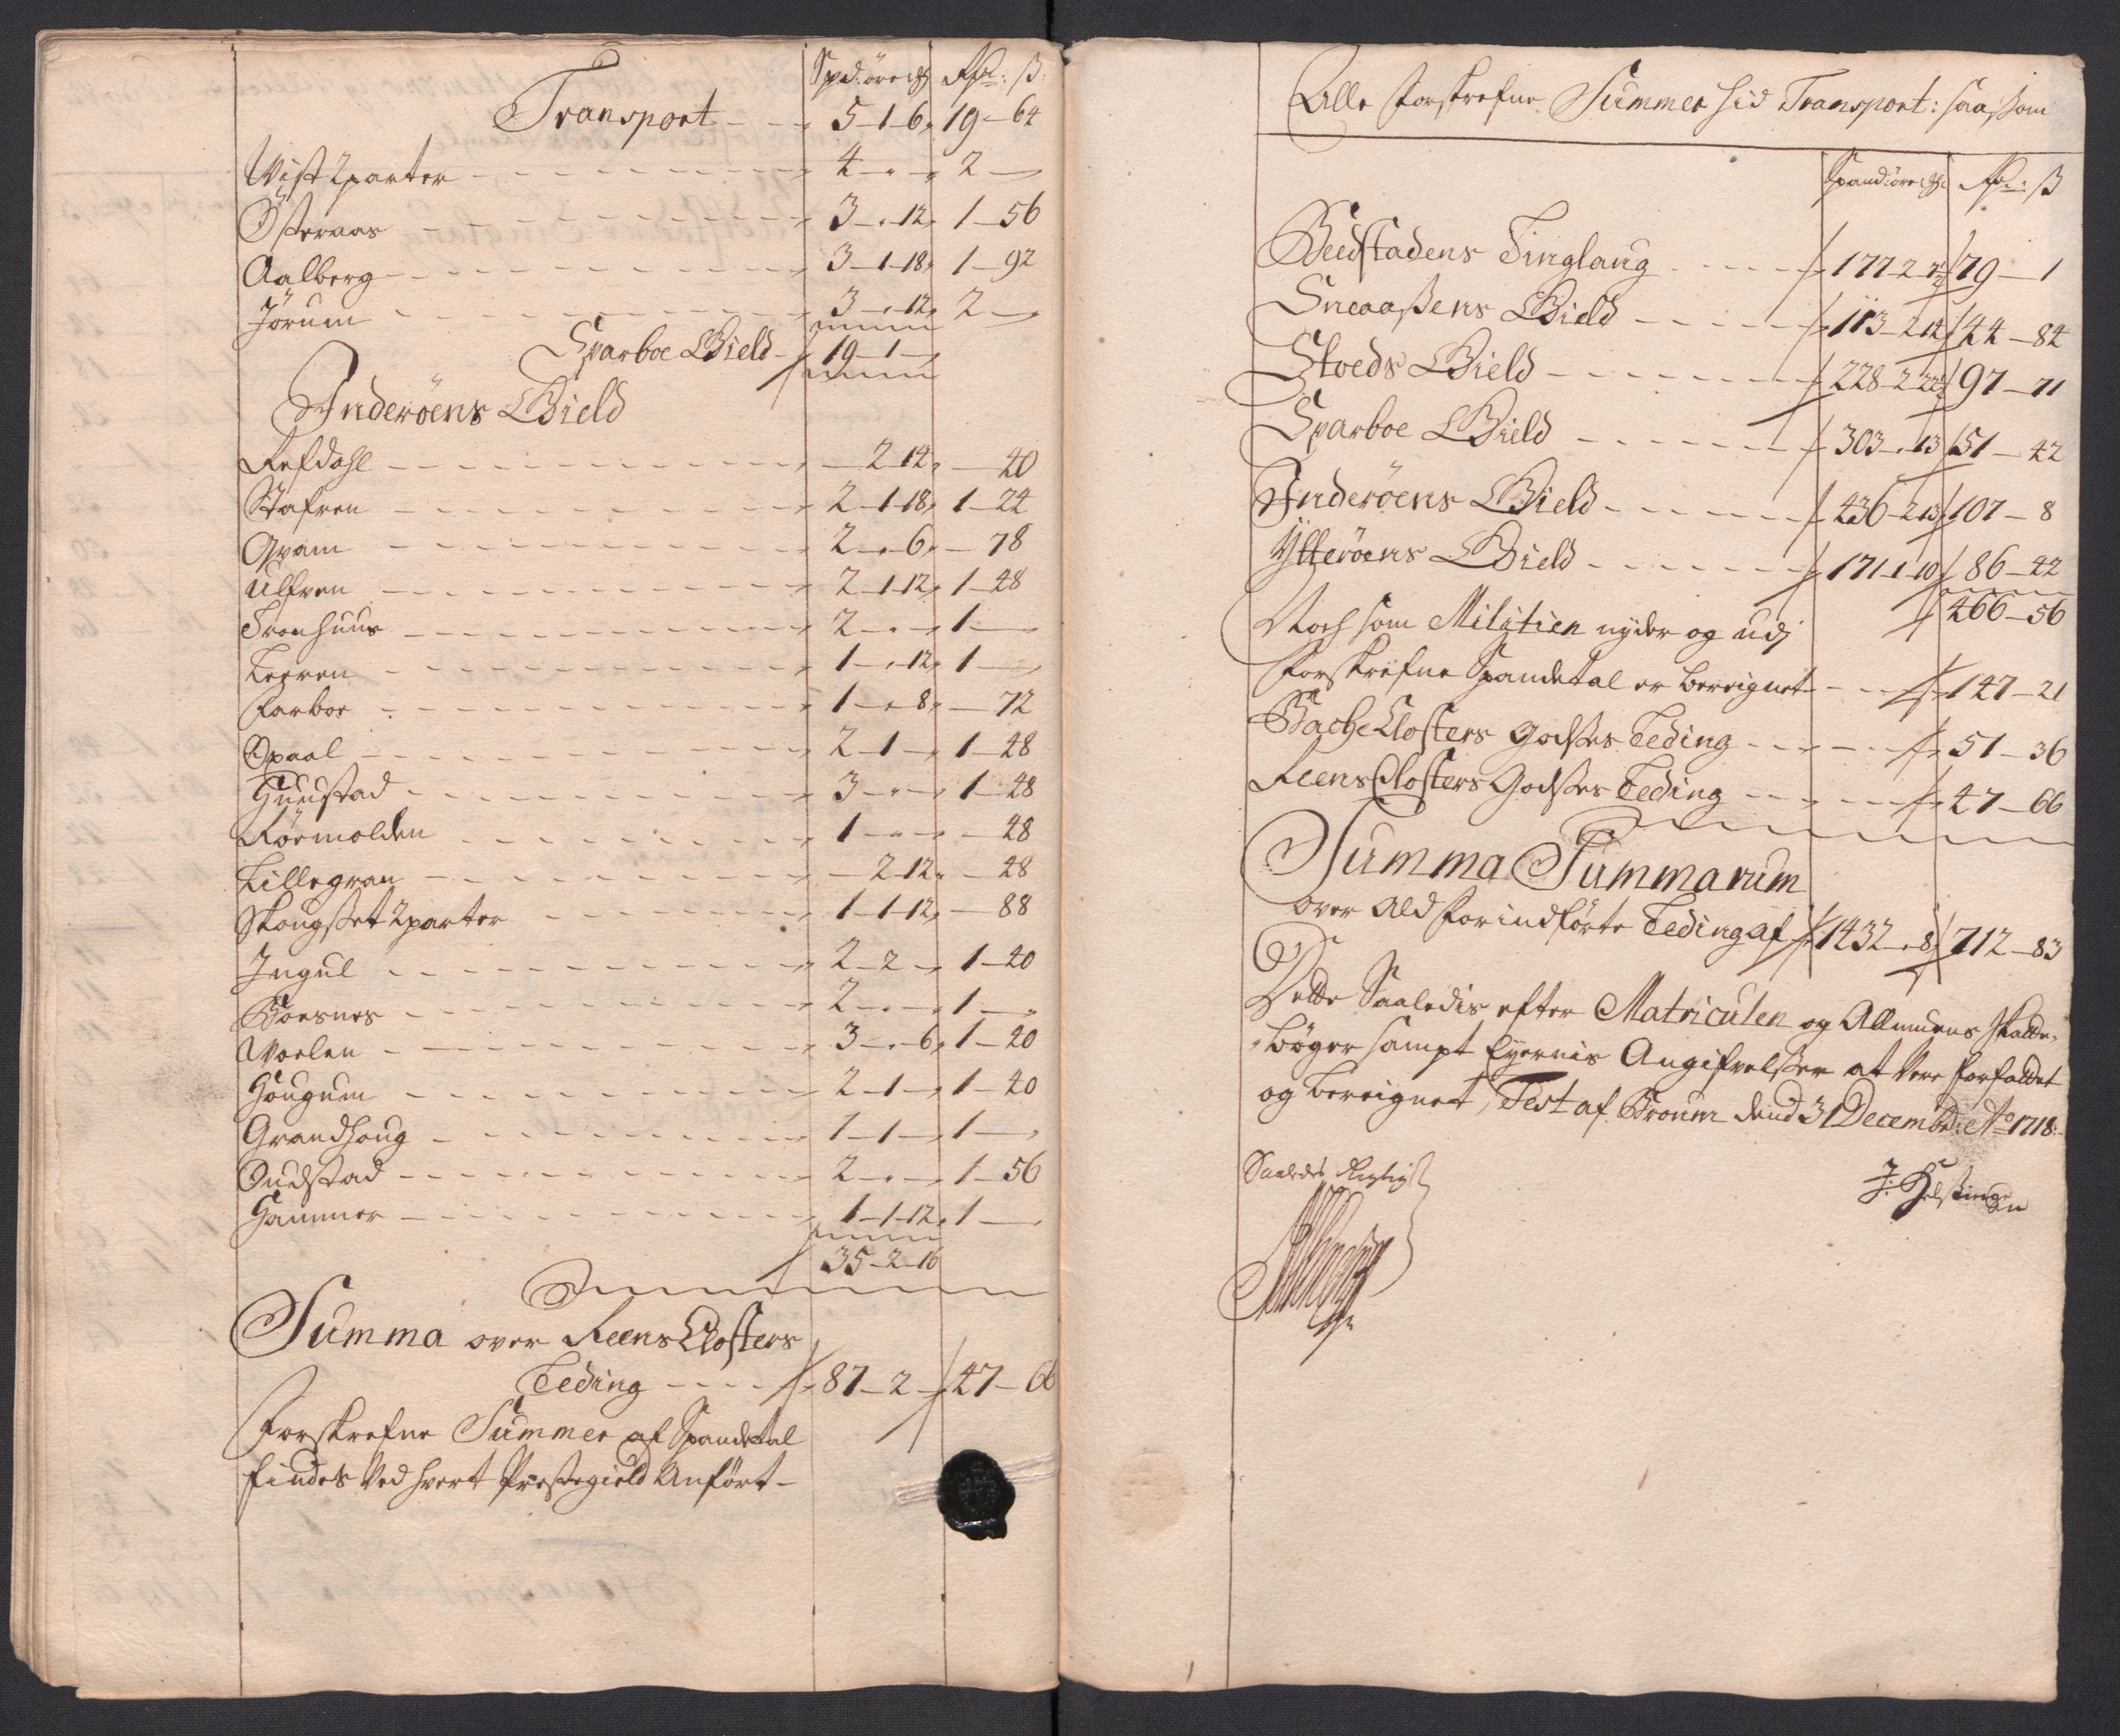 Spd: øre Rdr: ß
Transport - - 5-1-6, 19-64
Wist 2parter - - - 4 - - 2 -
Østeraas - - - 3 - 12, 1-56
Aalberg - - - 3-1-18, 1-92
Jörum - - - 3 - 12, 2 -
Sparboe Gield - 19-1-
Inderöens Gield
Refdahl - - - 2-12, - 40
Stafren - - - 2-1-18, 1-24
Qvam - - - 2 - 6, - 78
Ulfven - - - 2-1-12, 1-48
Tronhuus - - - 2 - - 1 -
Leeren - - - 1 - 12, 1 -
Farboe - - - 1 - 8, - 72
Opaal - - - 2-1 - 1-48
Huustad - - - 3 - - 1-48
Röemolden - - - 1 - - - 48
Lillegran - - - - 2-12, - 48
Skougset 2parter - - - 1-1-12, - 88
Ingul - - - 2-2 - 1-40
Boesnes - - - 2 - - 1 -
Woelen - - - 3 - 6, 1-20
Hougum - - - 2-1 - 1-40
Grandhoug - - - 1-1 - 1 -
Oudstad - - - 2 - - 1-56
Hammer - - - 1-1-12, 1 -
35-2-16
Summa over Reens Closters
Teding - - - 87-2 - 47-66
Forskrefne Summer af Spandetal
findes Ved hvert Prestegield Anført -
Alle Forskrefne Summer hid Transport: saasom
Spand: øre Rdr: ß
Beedstadens Tinglaug - - - 177-2- 79-1
Sneaasens Gield - - - 113-2-12 44-84
Stoeds Gield - - - 228-2-22 97-71
Sparboe Gield - - - 303 - 13 51-42
Inderöens Gield - - - 436-2-13 107-8
Ytteröens Gield - - - 171-1-10 86-42
466-56
Noch som Militien nyder og udj
forskrefne Spandetal er bereignet - - - 147-21
Bache Closters Godses Teding - - - 51-36
Reens Closters Godses Teding - - - 47-66
Summa Summarum
over Ald forindførte Teding af 1432 - 8 712-83
Dette Saaledis efter Matriculen og Almuens Skatte-
bøger sampt Eyernis Angifvelser at Vere forfattet
og bereignet, Test af Broum dend 31 Decembr: Ao 1718.
Saaledes Rigtigt
J: Helsing